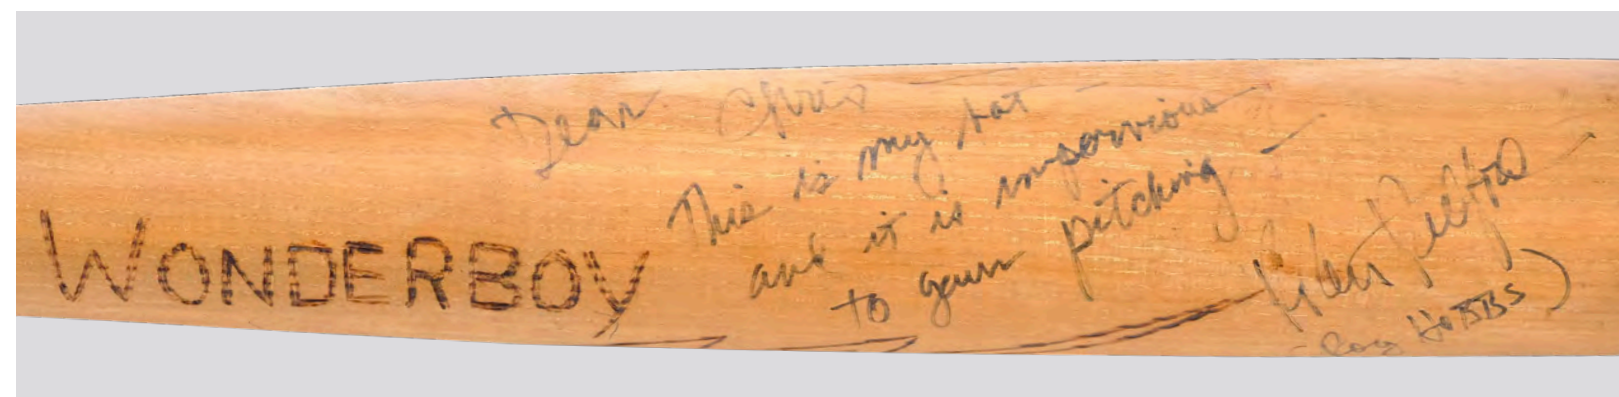 WONDERBOY
Dear Chris
This is my bat
and it is impervious
to your pitching
Robert Redford
(Roy HOBBS)